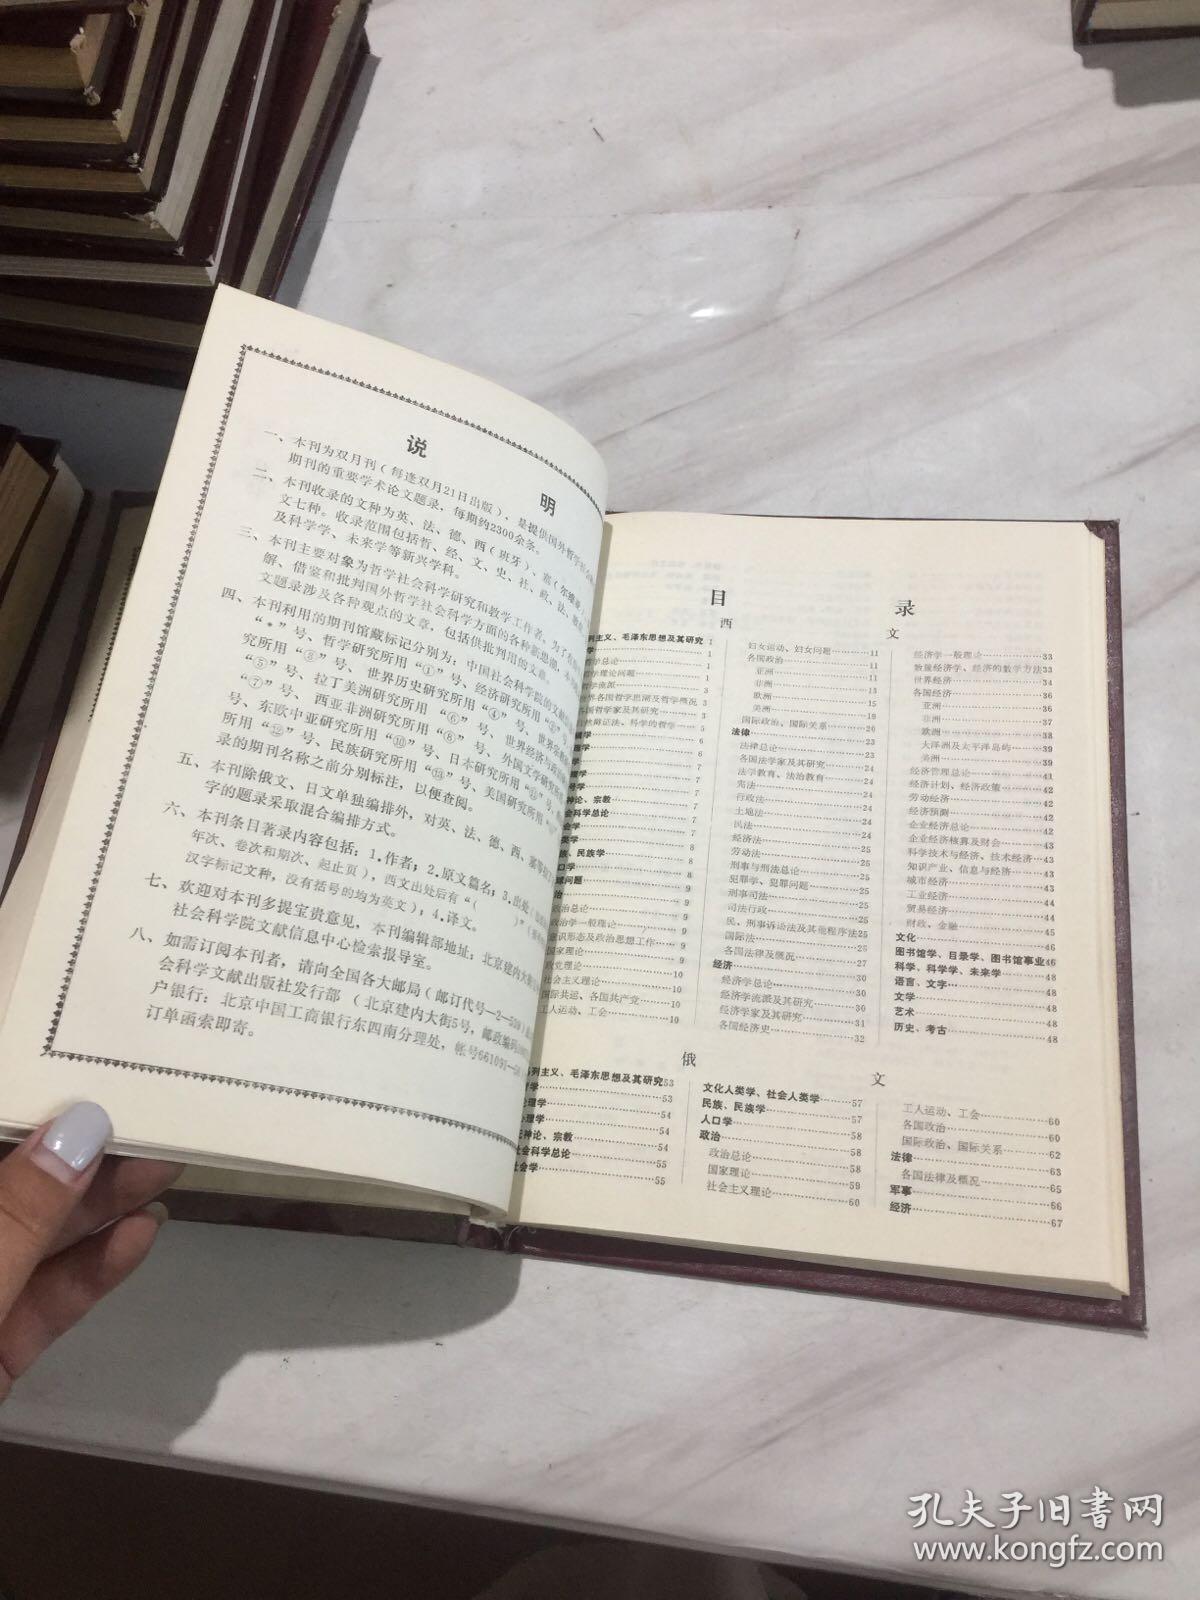 说明
一、本刊为双月刊（每逢双月21日出版），是提供国外哲学社会
期刊的重要学术论文题录，每期约2300余条。
二、本刊收录的文种为英、法、德、西（班牙）、塞（尔维亚）
文七种。收录范围包括哲、经、文、史、社、政、法、教
及科学学、未来学等新兴学科。
三、本刊主要对象为哲学社会科学研究和教学工作者。为了
解、借鉴和批判国外哲学社会科学方面的各种新思潮，本
文题录涉及各种观点的文章，包括供批判用的文章。
四、本刊利用的期刊馆藏标记分别为：中国社会科学院的文献
“*”号、哲学研究所用“①”号、经济研究所用“②”号、世界
究所用“③”号、世界历史研究所用“④”号、世界经济与政治
“⑤”号、拉丁美洲研究所用“⑥”号、外国文学研究所
“⑦”号、西亚非洲研究所用“⑧”号、日本研究所用
号、东欧中亚研究所用“⑩”号、美国研究所用
所用“⑫”号、民族研究所用“⑬”号
录的期刊名称之前分别标注，以便查阅。
五、本刊除俄文、日文单独编排外，对英、法、德、西、塞等
字的题录采取混合编排方式。
六、本刊条目著录内容包括：1.作者；2.原文篇名；3.出处
年次、卷次和期次、起止页），西文出处后有“（ ）”
汉字标记文种，没有括号的均为英文）；4.译文。
七、欢迎对本刊多提宝贵意见，本刊编辑部地址：北京建内大街
社会科学院文献信息中心检索报导室。
八、如需订阅本刊者，请向全国各大邮局（邮订代号—2—
会科学文献出版社发行部（北京建内大街5号，邮政编码
户银行：北京中国工商银行东四南分理处，帐号661091—
订单函索即寄。
目录
西文
列主义、毛泽东思想及其研究 1
学 1
哲学总论 1
哲学理论问题 1
哲学流派 3
世界各国哲学思潮及哲学概况 3
各国哲学家及其研究 3
自然辩证法、科学的哲学 5
辑学 6
理学 6
学 7
理学 7
号学 7
神论、宗教 7
会科学总论 7
会学 7
类学 8
族、民族学 8
口学 8
球问题 9
治 9
政治总论 9
政治学一般理论 9
意识形态及政治思想工作 9
国家理论 9
政党理论 10
社会主义理论 10
国际共运、各国共产党 10
工人运动、工会 10
妇女运动、妇女问题 11
各国政治 11
亚洲 11
非洲 13
欧洲 15
美洲 19
国际政治、国际关系 20
法律 23
法律总论 23
各国法学家及其研究 24
法学教育、法治教育 24
宪法 24
行政法 24
土地法 24
民法 24
经济法 25
劳动法 25
刑事与刑法总论 25
犯罪学、犯罪问题 25
刑事司法 25
司法行政 25
民、刑事诉讼法及其他程序法 25
国际法 25
各国法律及概况 27
经济 30
经济学总论 30
经济学流派及其研究 30
经济学家及其研究 31
各国经济史 32
经济学一般理论 33
数量经济学、经济的数学方法 33
世界经济 34
各国经济 36
亚洲 36
非洲 37
欧洲 38
大洋洲及太平洋岛屿 39
美洲 39
经济管理总论 41
经济计划、经济政策 42
劳动经济 42
经济预测 42
企业经济总论 42
企业经济核算及财会 42
科学技术与经济、技术经济 43
知识产业、信息与经济 43
城市经济 43
工业经济 44
贸易经济 44
财政、金融 45
文化 46
图书馆学、目录学、图书馆事业 46
科学、科学学、未来学 48
语言、文字 48
文学 48
艺术 48
历史、考古 48
俄文
列主义、毛泽东思想及其研究 53
学 53
理学 54
心理学 54
无神论、宗教 54
社会科学总论 55
社会学 55
文化人类学、社会人类学 57
民族、民族学 57
人口学 58
政治 58
政治总论 58
国家理论 59
社会主义理论 60
工人运动、工会 60
各国政治 60
国际政治、国际关系 62
法律 63
各国法律及概况 65
军事 66
经济 67
孔夫子旧书网
www.kongfz.com